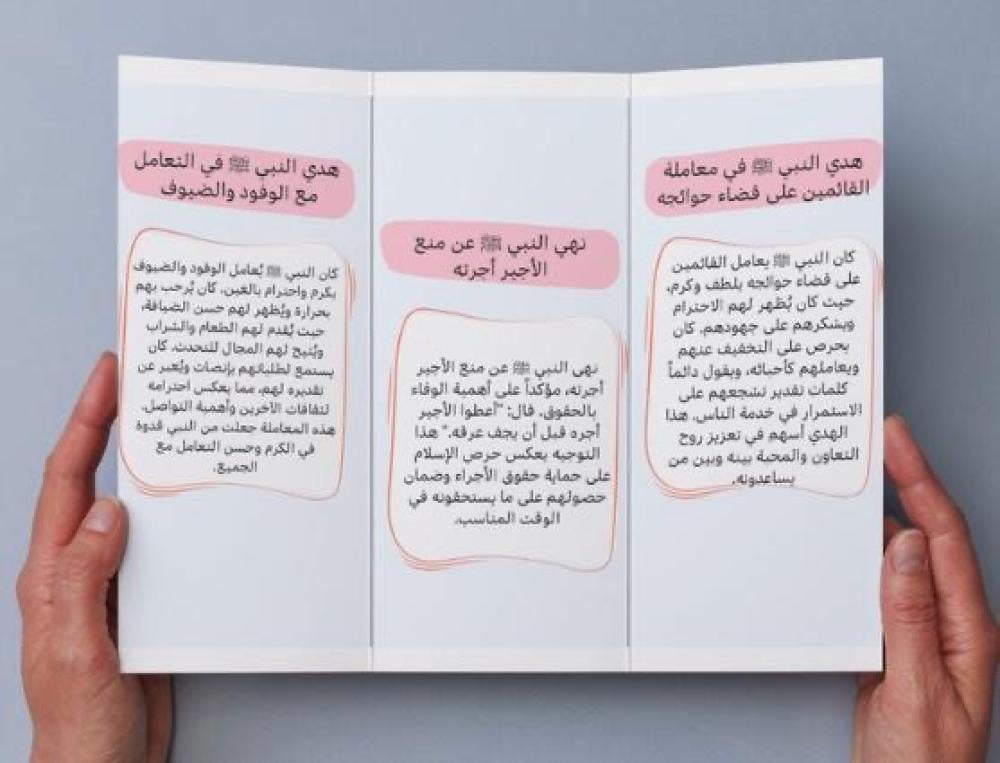 هدي النبي ﷺ في معاملة
القائمين على قضاء حوائجه
كان النبي ﷺ يعامل القائمين
على قضاء حوائجه بلطف وكرم،
حيث كان يُظهر لهم الاحترام
ويشكرهم على جهودهم. كان
يحرص على التخفيف عنهم
ويعاملهم كأحبائه، ويقول دائماً
كلمات تقدير تشجعهم على
الاستمرار في خدمة الناس. هذا
الهدي أسهم في تعزيز روح
التعاون والمحبة بينه وبين من
يساعدونه.
نهي النبي ﷺ عن منع
الأجير أجرته
نهى النبي ﷺ عن منع الأجير
أجرته، مؤكداً على أهمية الوفاء
بالحقوق. قال: "أعطوا الأجير
أجره قبل أن يجف عرقه." هذا
التوجيه يعكس حرص الإسلام
على حماية حقوق الأجراء وضمان
حصولهم على ما يستحقونه في
الوقت المناسب.
هدي النبي ﷺ في التعامل
مع الوفود والضيوف
كان النبي ﷺ يُعامل الوفود والضيوف
بكرم واحترام بالغين. كان يُرحب بهم
بحرارة ويُظهر لهم حسن الضيافة،
حيث يُقدم لهم الطعام والشراب
ويُتيح لهم المجال للتحدث. كان
يستمع لطلباتهم بإنصات ويُعبر عن
تقديره لهم، مما يعكس احترامه
لثقافات الآخرين وأهمية التواصل.
هذه المعاملة جعلت من النبي قدوة
في الكرم وحسن التعامل مع
الجميع.